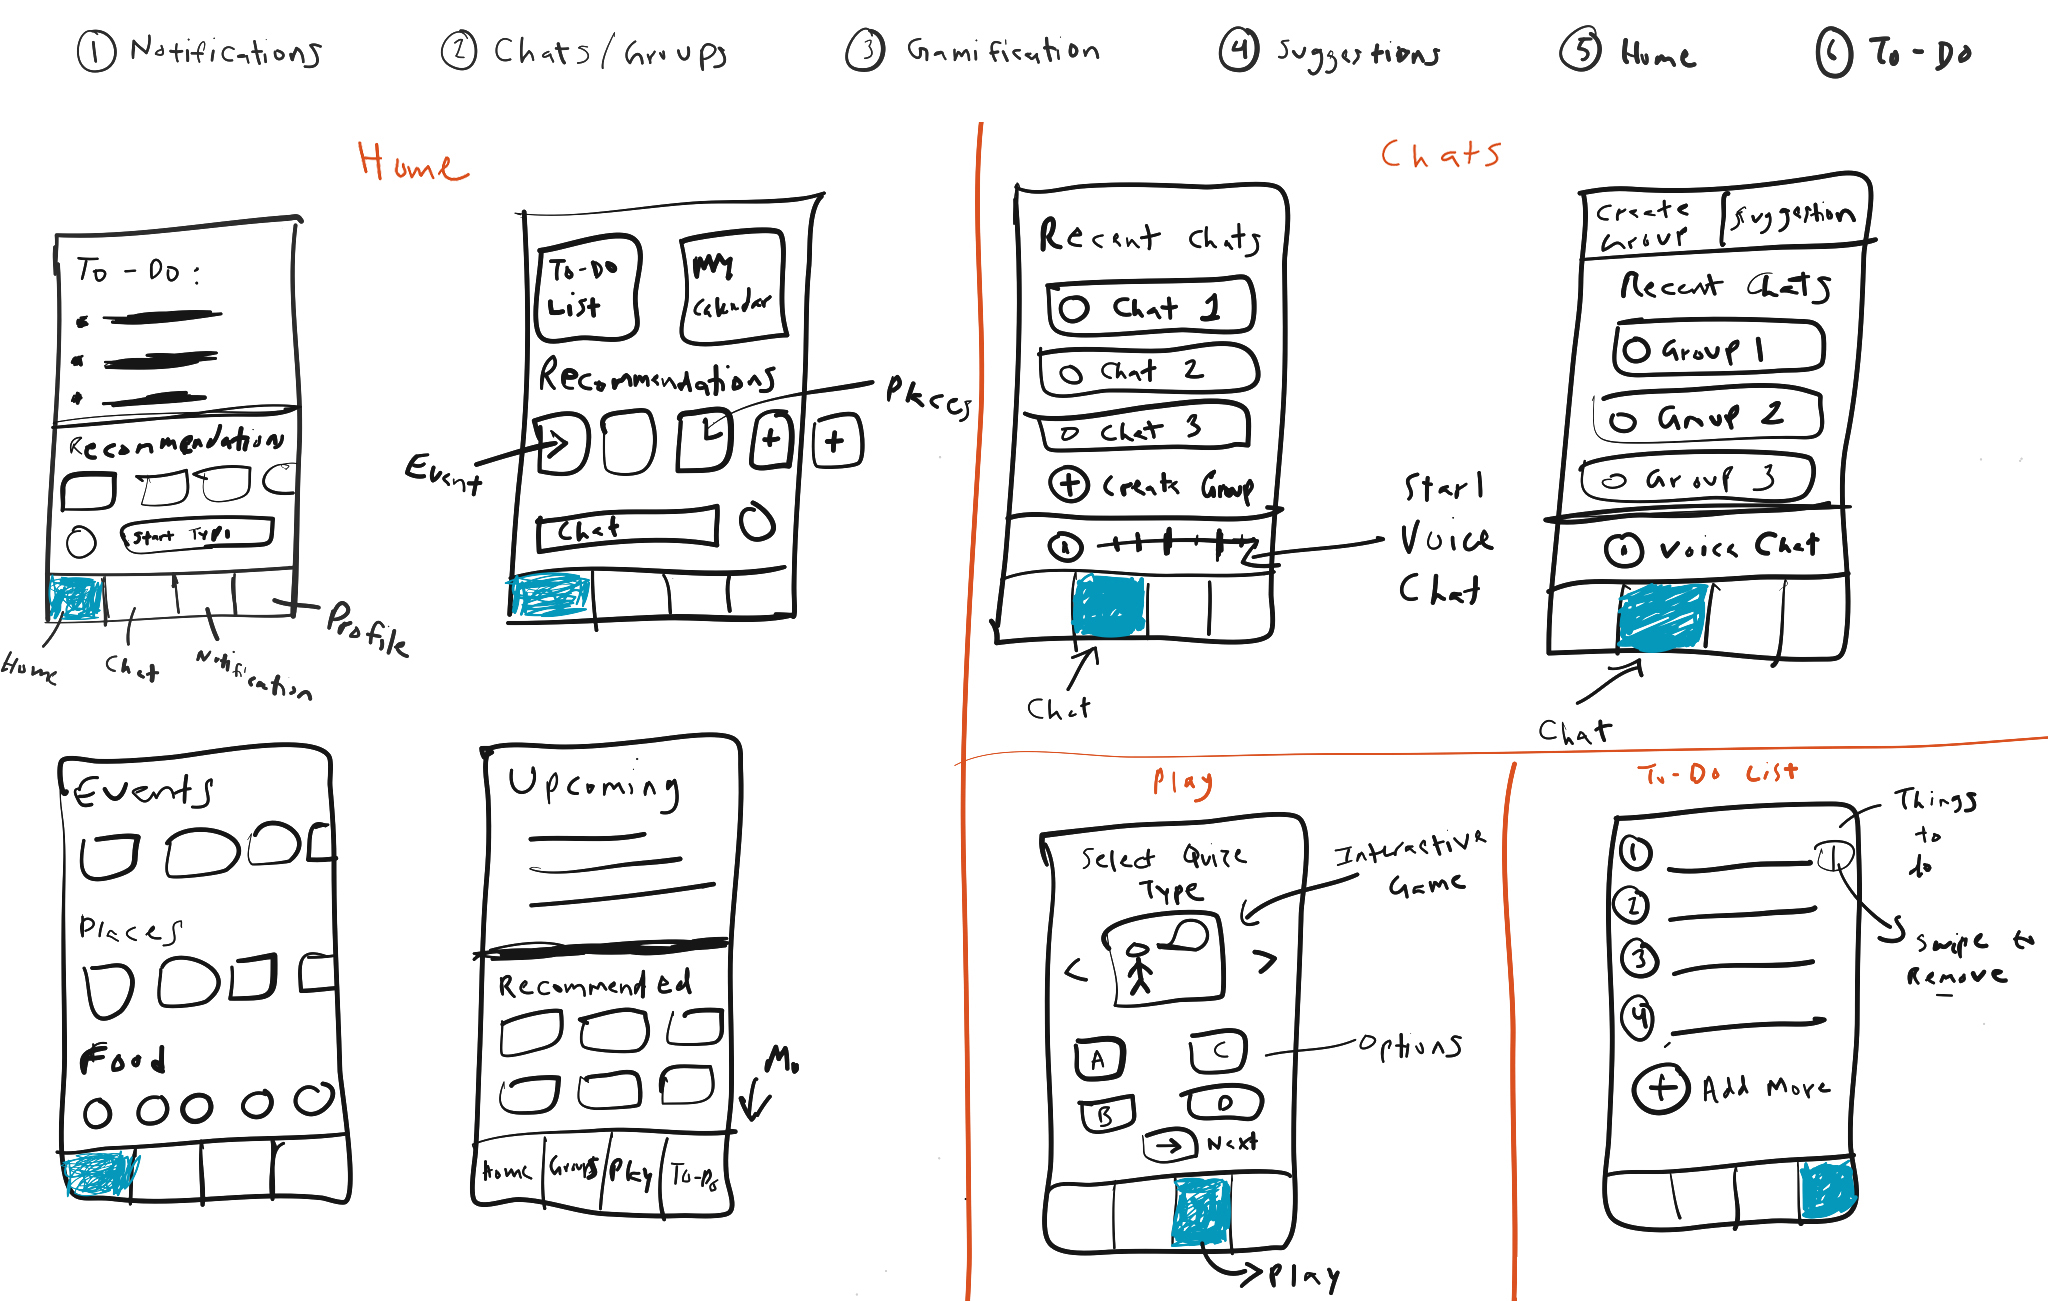 ① Notifications
② Chats/Groups
③ Gamification
④ Suggestions
⑤ Home
⑥ To-Do
Home
To-Do:
Recommendation
Start Typi
Home
Chat
Notification
Profile
To-Do
List
My
Calendar
Recommendations
Places
Event
Chat
Events
Places
Food
Upcoming
Recommended
Home
Groups
Play
To-Do
Chats
Recent Chats
Chat 1
Chat 2
Chat 3
+ Create Group
Start
Voice
Chat
Chat
Create
Group
Suggestion
Recent Chats
Group 1
Group 2
Group 3
Voice Chat
Chat
Play
Select Quize
Type
Interactive
Game
<
>
A
C
B
D
Options
→ Next
Play
To-Do List
1
2
3
4
+ Add More
Things
to
do
Swipe to
Remove